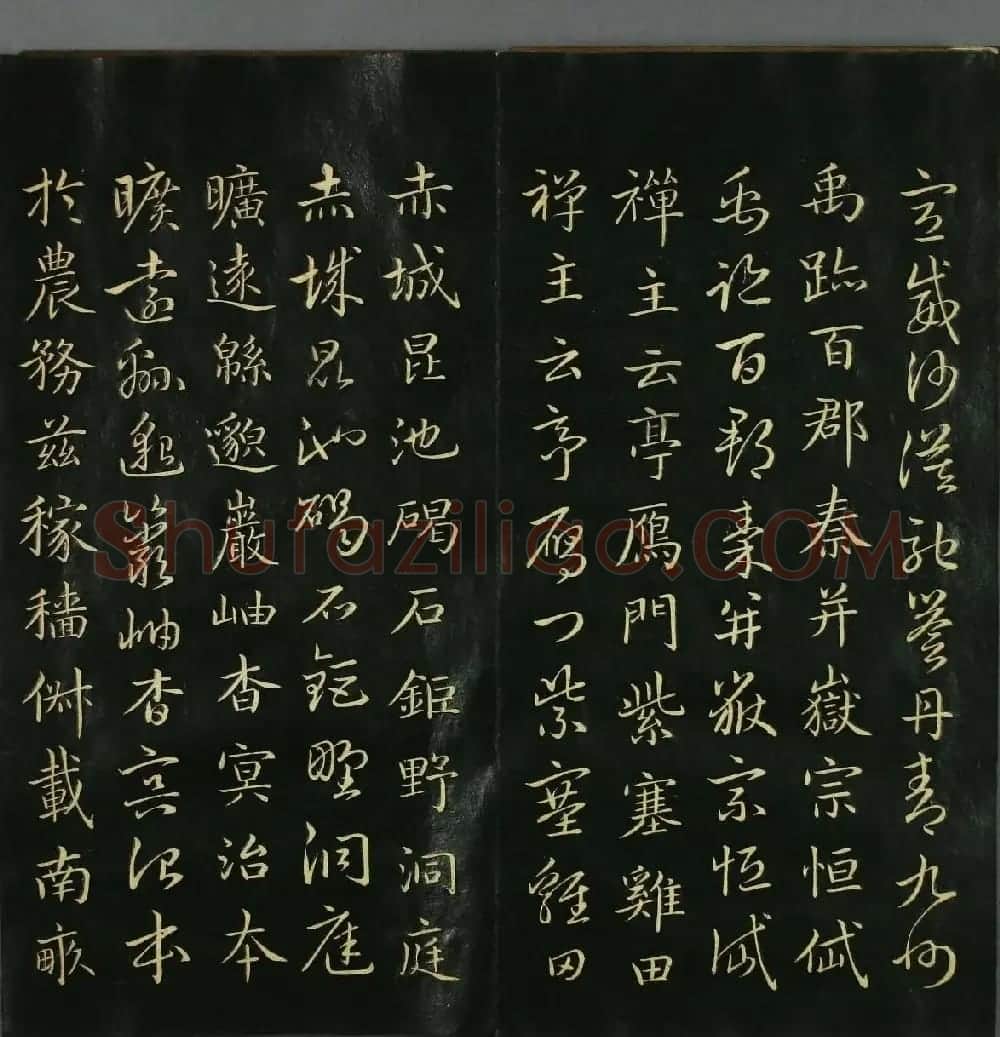 宣威沙漠馳譽丹青九州
禹跡百郡秦并嶽宗恒岱
禹跡百郡秦并嶽宗恒岱
禪主云亭鴈門紫塞雞田
禪主云亭鴈門紫塞雞田
赤城昆池碣石鉅野洞庭
赤城昆池碣石鉅野洞庭
曠遠緜邈巖岫杳冥治本
曠遠緜邈巖岫杳冥治本
於農務茲稼穡俶載南畝
Shufaziliao.COM